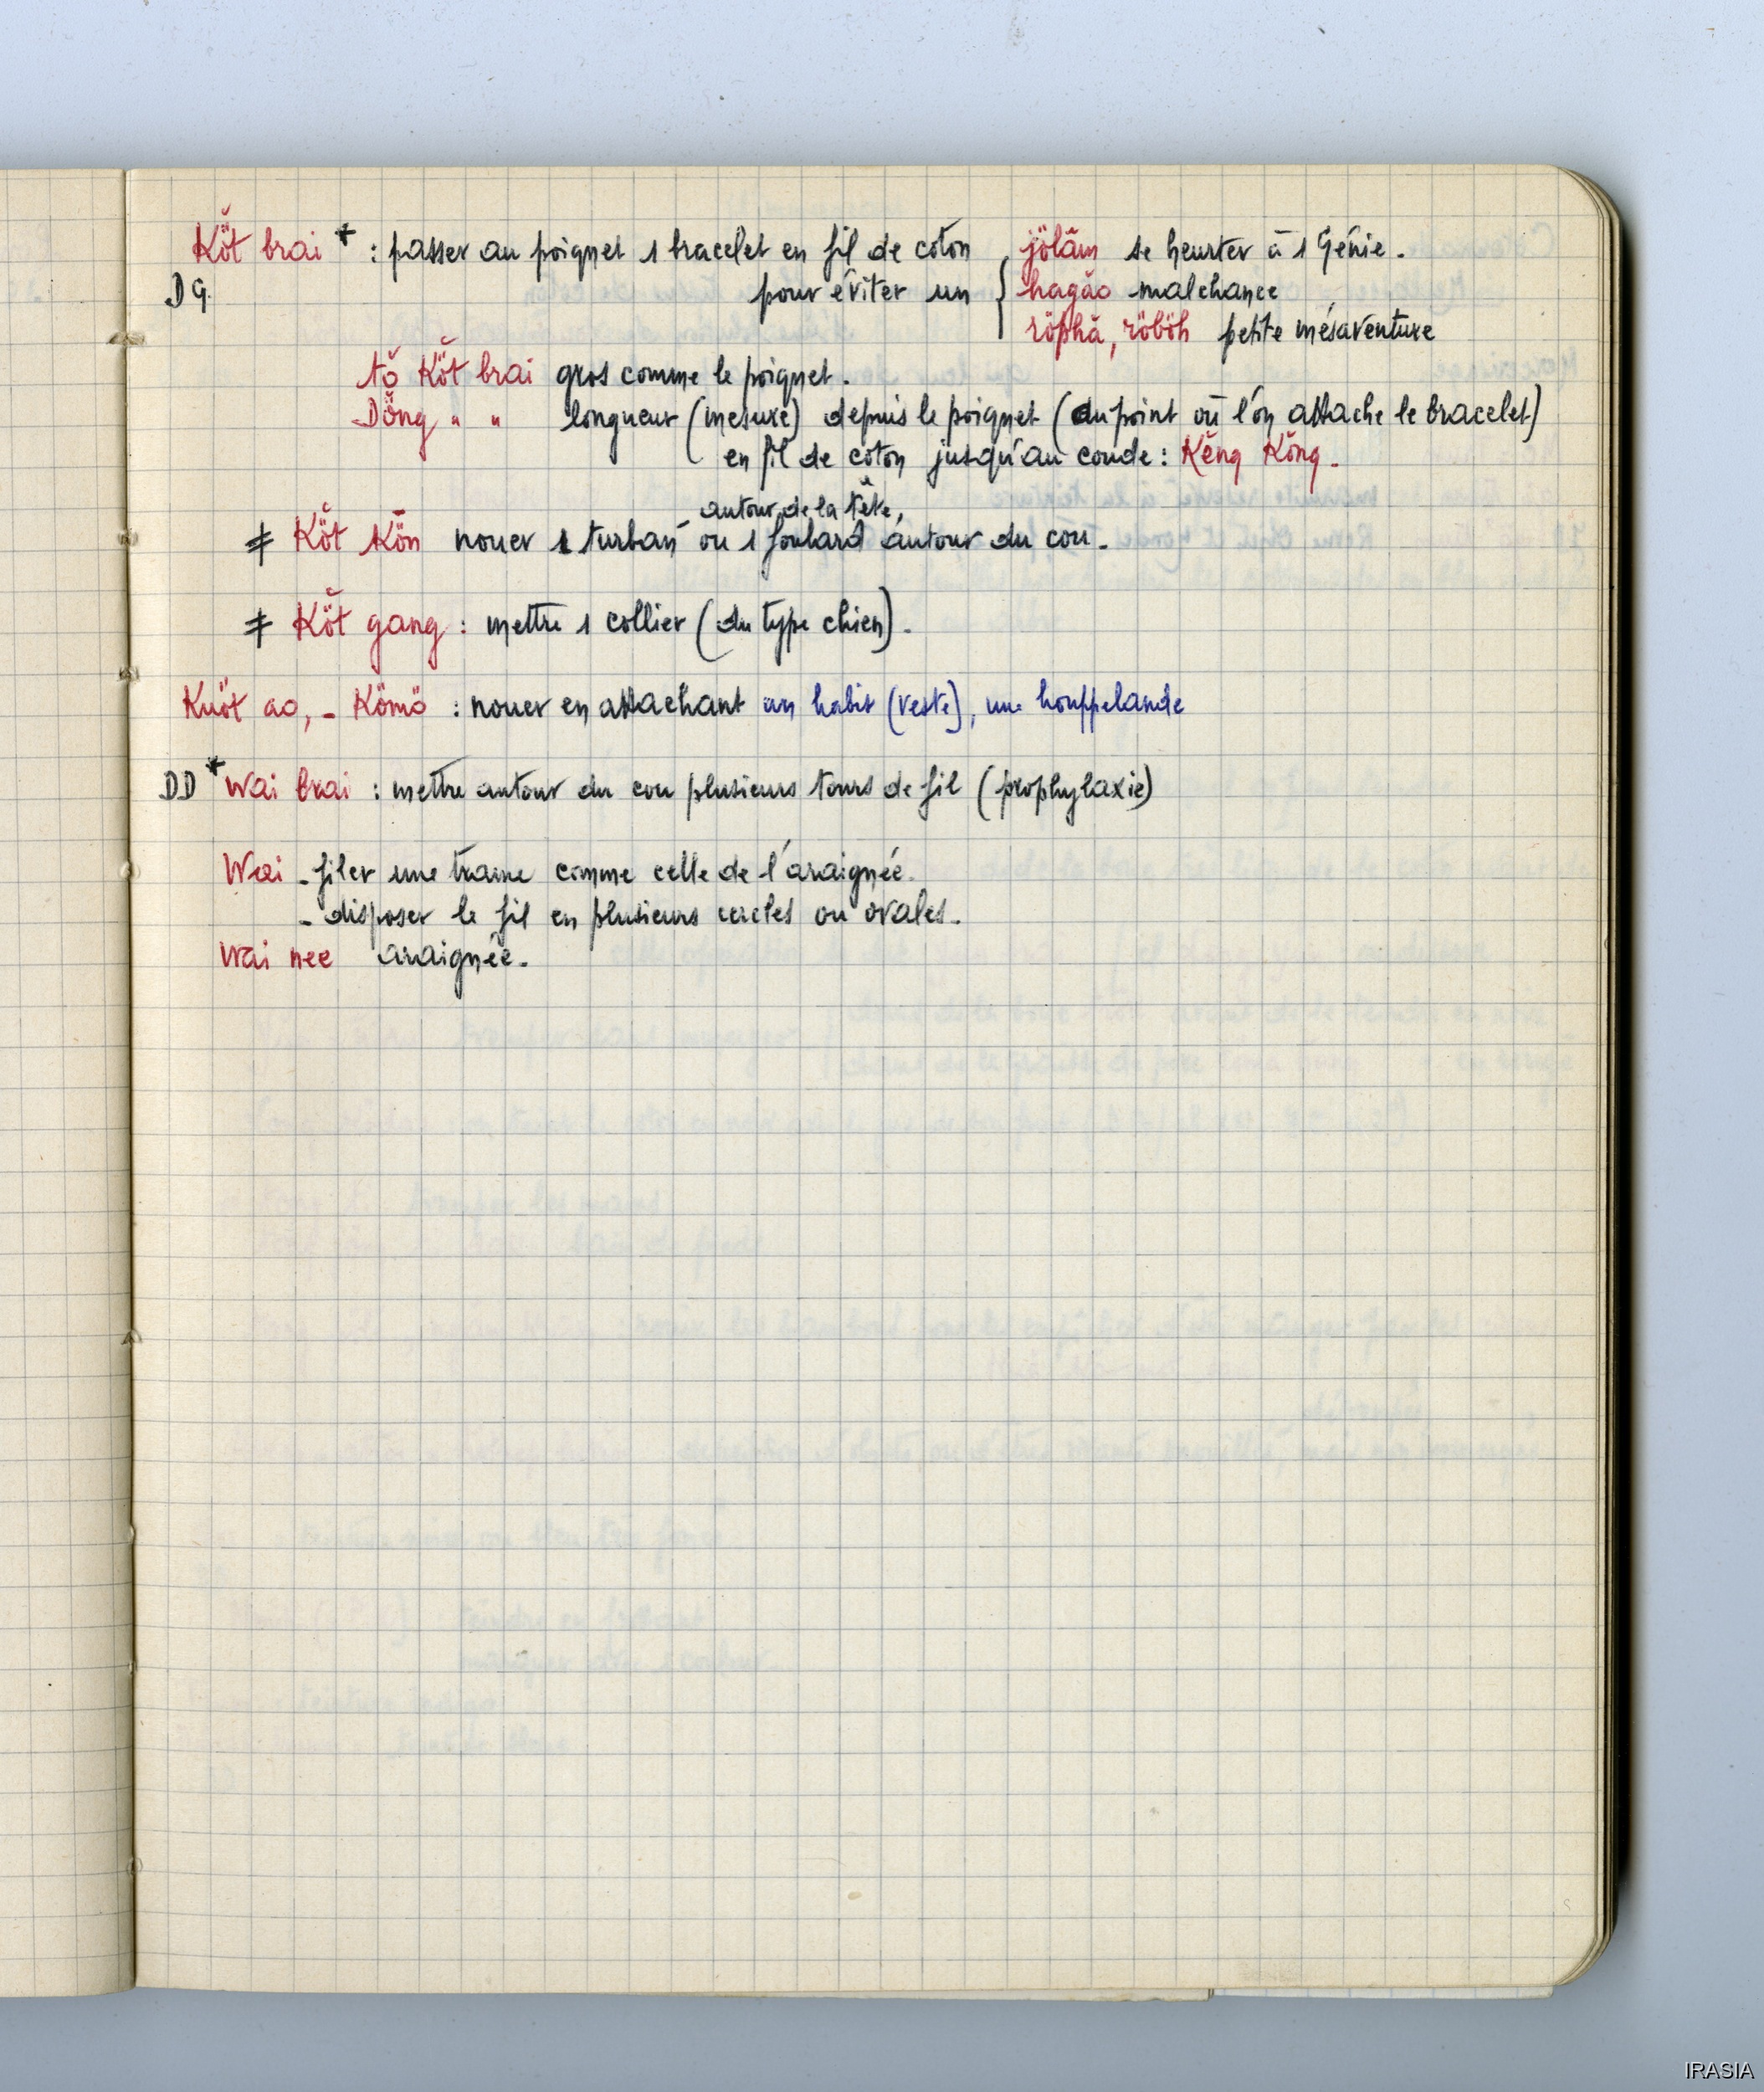 Kö̆t brai * : passer au poignet 1 bracelet en fil de coton { jölâm se heurter à 1 Génie.
DG. pour éviter un hagăo malchance
röphă, röböh petite mésaventure
tŏ Kö̆t brai gros comme le poignet.
Dö̆ng " " longueur (mesure) depuis le poignet (du point où l'on attache le bracelet)
en fil de coton jusqu'au coude : Kĕng Kŏng.
autour de la tête,
≠ Kö̆t Kön nouer 1 turban ou 1 foulard autour du cou.
≠ Kö̆t gang : mettre 1 collier (du type chien).
Kuöt ao, - Kömö : nouer en attachant un habit (veste), une houppelande
DD * Wai brai : mettre autour du cou plusieurs tours de fil (prophylaxie)
Wai - filer une trame comme celle de l'araignée.
- disposer le fil en plusieurs cercles ou ovales.
Wai nee araignée.
IRASIA